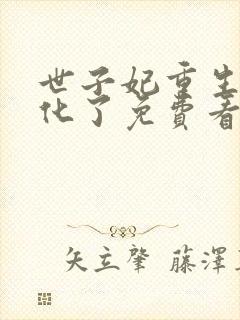 世子妃重生
化了免费看
矢立肇 藤泽